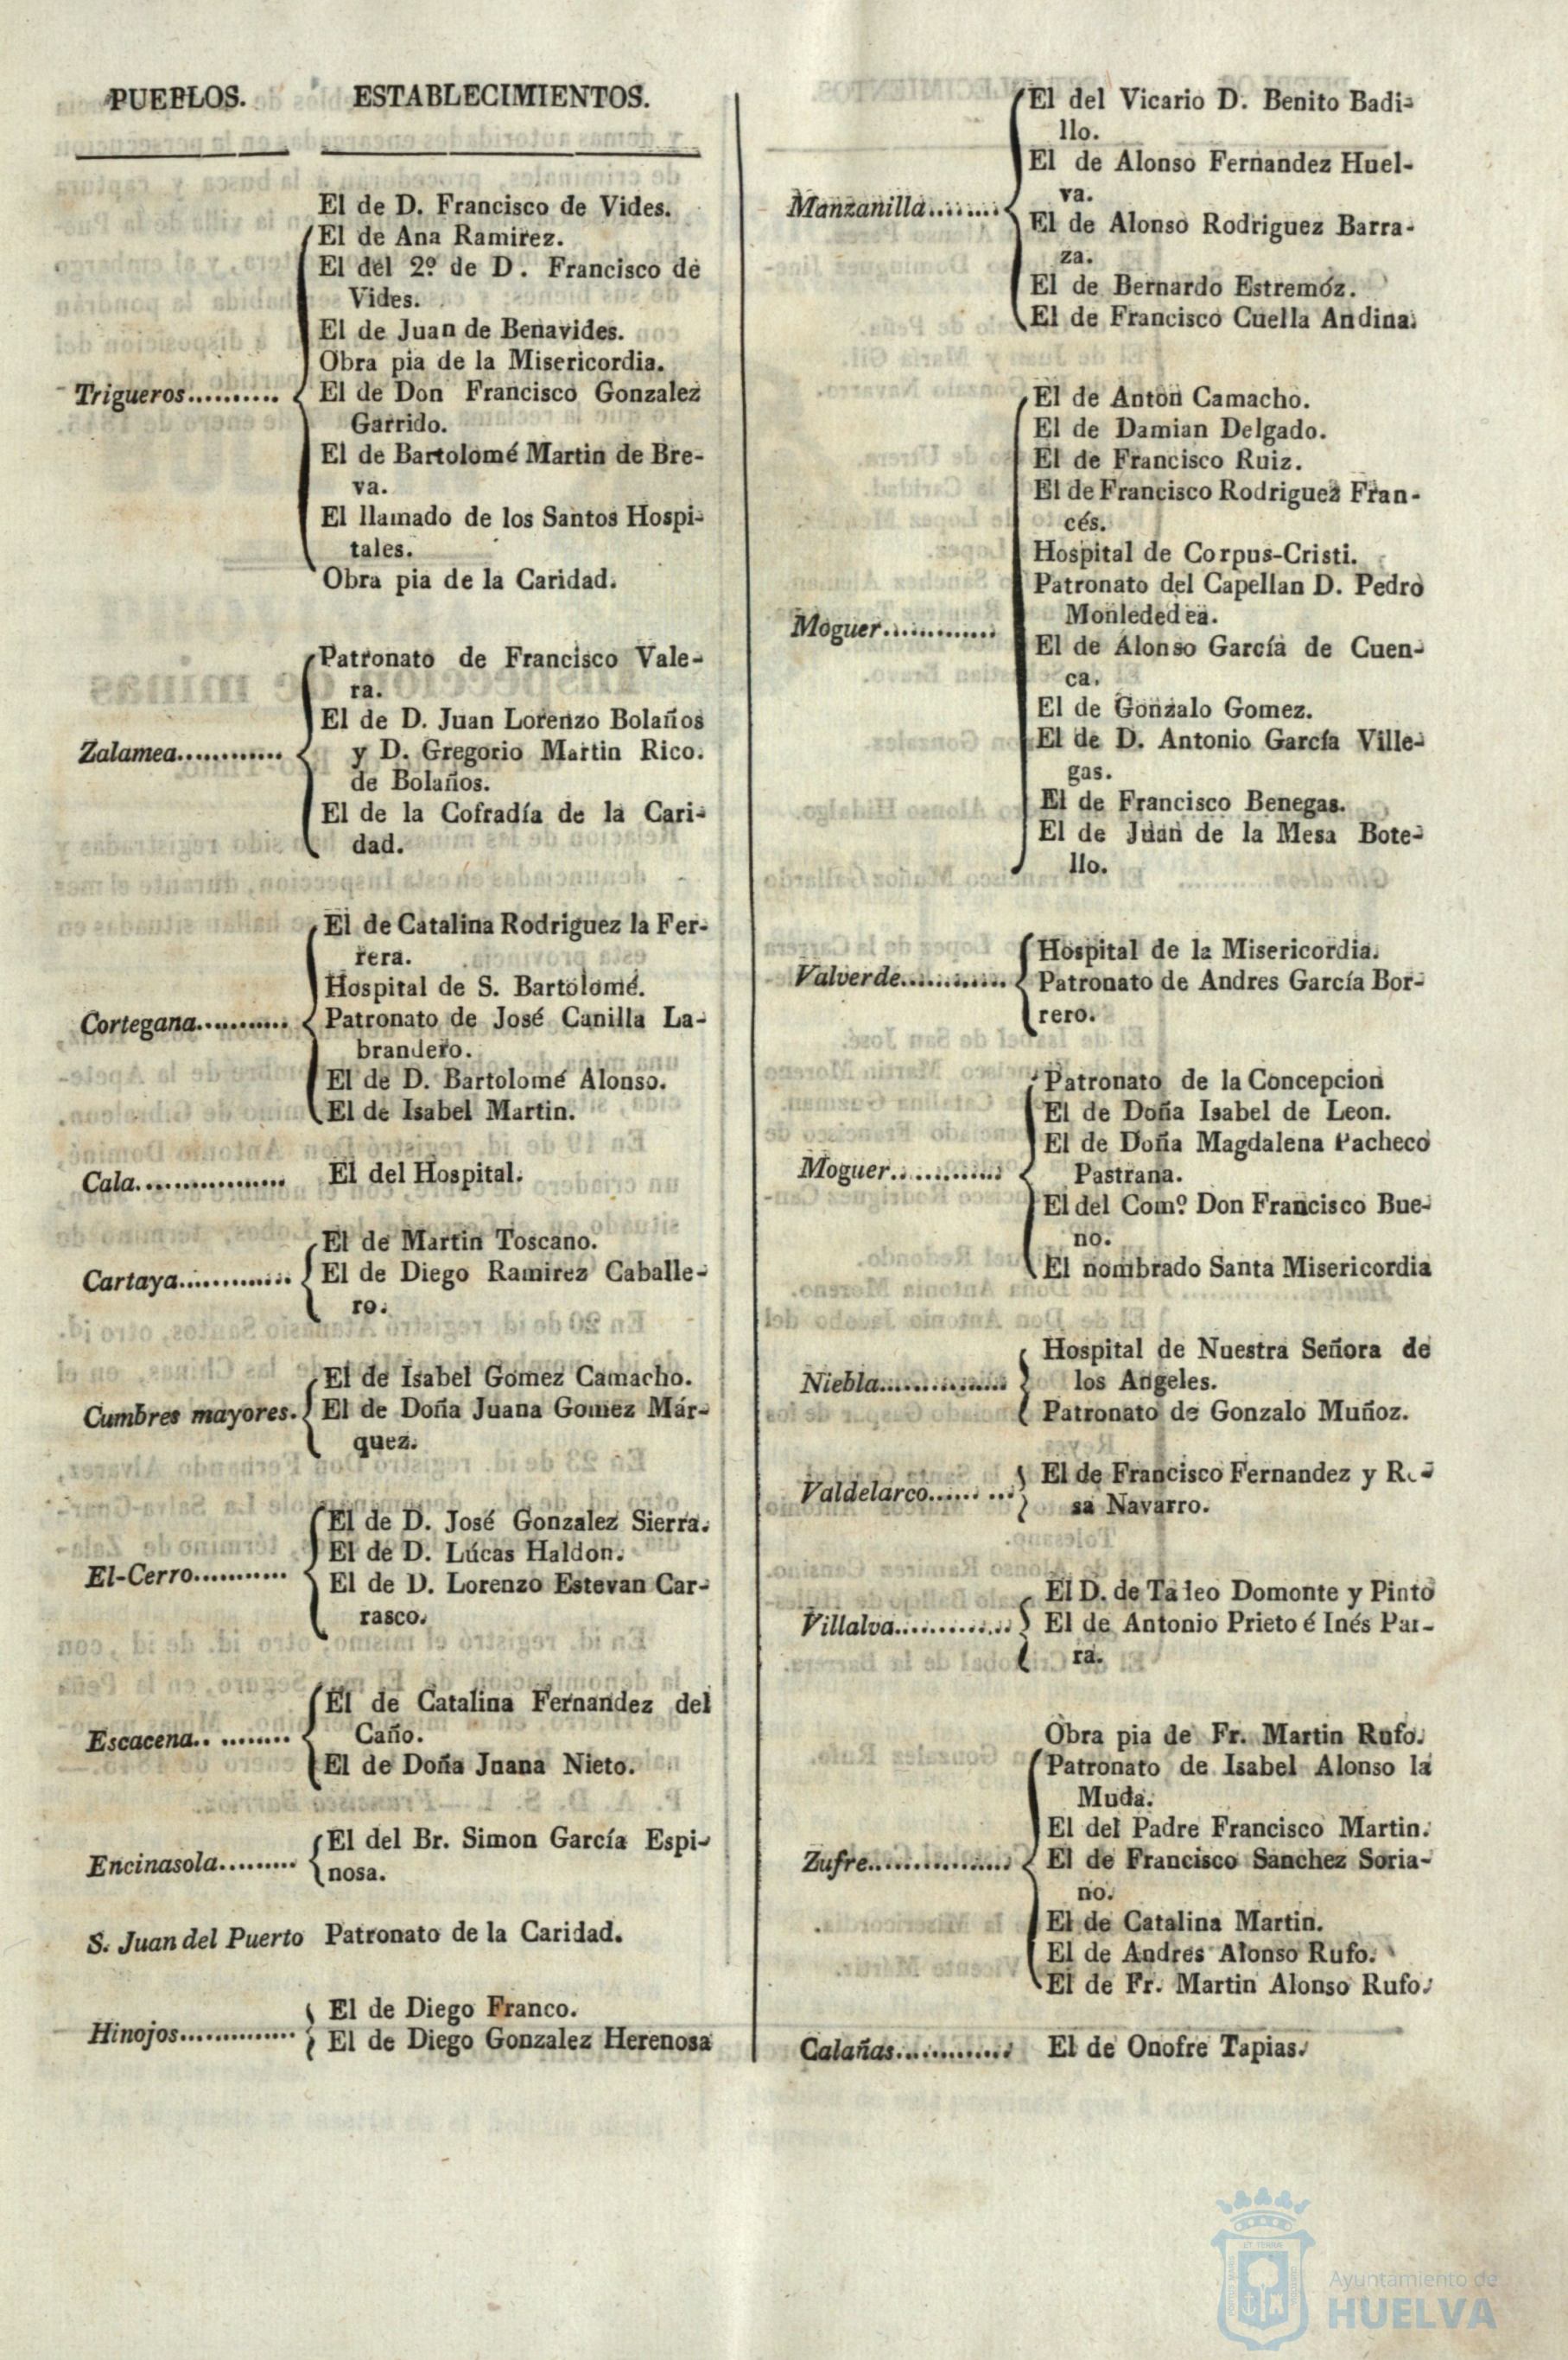 PUEBLOS. ESTABLECIMIENTOS.
El de D. Francisco de Vides.
El de Ana Ramirez.
El del 2º de D. Francisco de
Vides.
El de Juan de Benavides.
Obra pia de la Misericordia.
Trigueros.......... El de Don Francisco Gonzalez
Garrido.
El de Bartolomé Martin de Bre-
va.
El llamado de los Santos Hospi-
tales.
Obra pia de la Caridad.
Patronato de Francisco Vale-
ra.
El de D. Juan Lorenzo Bolaños
Zalamea............ y D. Gregorio Martin Rico.
de Bolaños.
El de la Cofradía de la Cari-
dad.
El de Catalina Rodriguez la Fer-
rera.
Hospital de S. Bartolomé.
Cortegana.......... Patronato de José Canilla La-
brandero.
El de D. Bartolomé Alonso.
El de Isabel Martin.
Cala................ El del Hospital.
El de Martin Toscano.
Cartaya............ El de Diego Ramirez Caballe-
ro.
El de Isabel Gomez Camacho.
Cumbres mayores. El de Doña Juana Gomez Már-
quez.
El de D. José Gonzalez Sierra.
El de D. Lúcas Haldon.
El-Cerro.......... El de D. Lorenzo Estevan Car-
rasco.
El de Catalina Fernandez del
Escacena.. ........ Caño.
El de Doña Juana Nieto.
El del Br. Simon García Espi-
Encinasola......... nosa.
S. Juan del Puerto Patronato de la Caridad.
El de Diego Franco.
Hinojos............. El de Diego Gonzalez Herenosa
El del Vicario D. Benito Badi-
llo.
El de Alonso Fernandez Huel-
va.
Manzanilla........ El de Alonso Rodriguez Barra-
za.
El de Bernardo Estremóz.
El de Francisco Cuella Andina.
El de Anton Camacho.
El de Damian Delgado.
El de Francisco Ruiz.
El de Francisco Rodriguez Fran-
cés.
Hospital de Corpus-Cristi.
Patronato del Capellan D. Pedro
Moguer............ Monlededea.
El de Alonso García de Cuen-
ca.
El de Gonzalo Gomez.
El de D. Antonio García Ville-
gas.
El de Francisco Benegas.
El de Juan de la Mesa Bote-
llo.
Hospital de la Misericordia.
Valverde............ Patronato de Andres García Bor-
rero.
Patronato de la Concepcion
El de Doña Isabel de Leon.
El de Doña Magdalena Pacheco
Moguer............ Pastrana.
El del Comº Don Francisco Bue-
no.
El nombrado Santa Misericordia
Hospital de Nuestra Señora de
Niebla.............. los Angeles.
Patronato de Gonzalo Muñoz.
El de Francisco Fernandez y
Valdelarco...... ... sa Navarro.
El D. de Ta leo Domonte y Pinto
Villalva............. El de Antonio Prieto é Inés Par-
ra.
Obra pia de Fr. Martin Rufo.
Patronato de Isabel Alonso la
Muda.
El del Padre Francisco Martin.
Zufre................ El de Francisco Sanchez Soria-
no.
El de Catalina Martin.
El de Andres Alonso Rufo.
El de Fr. Martin Alonso Rufo.
Calañas............ El de Onofre Tapias.
Ayuntamiento de
HUELVA